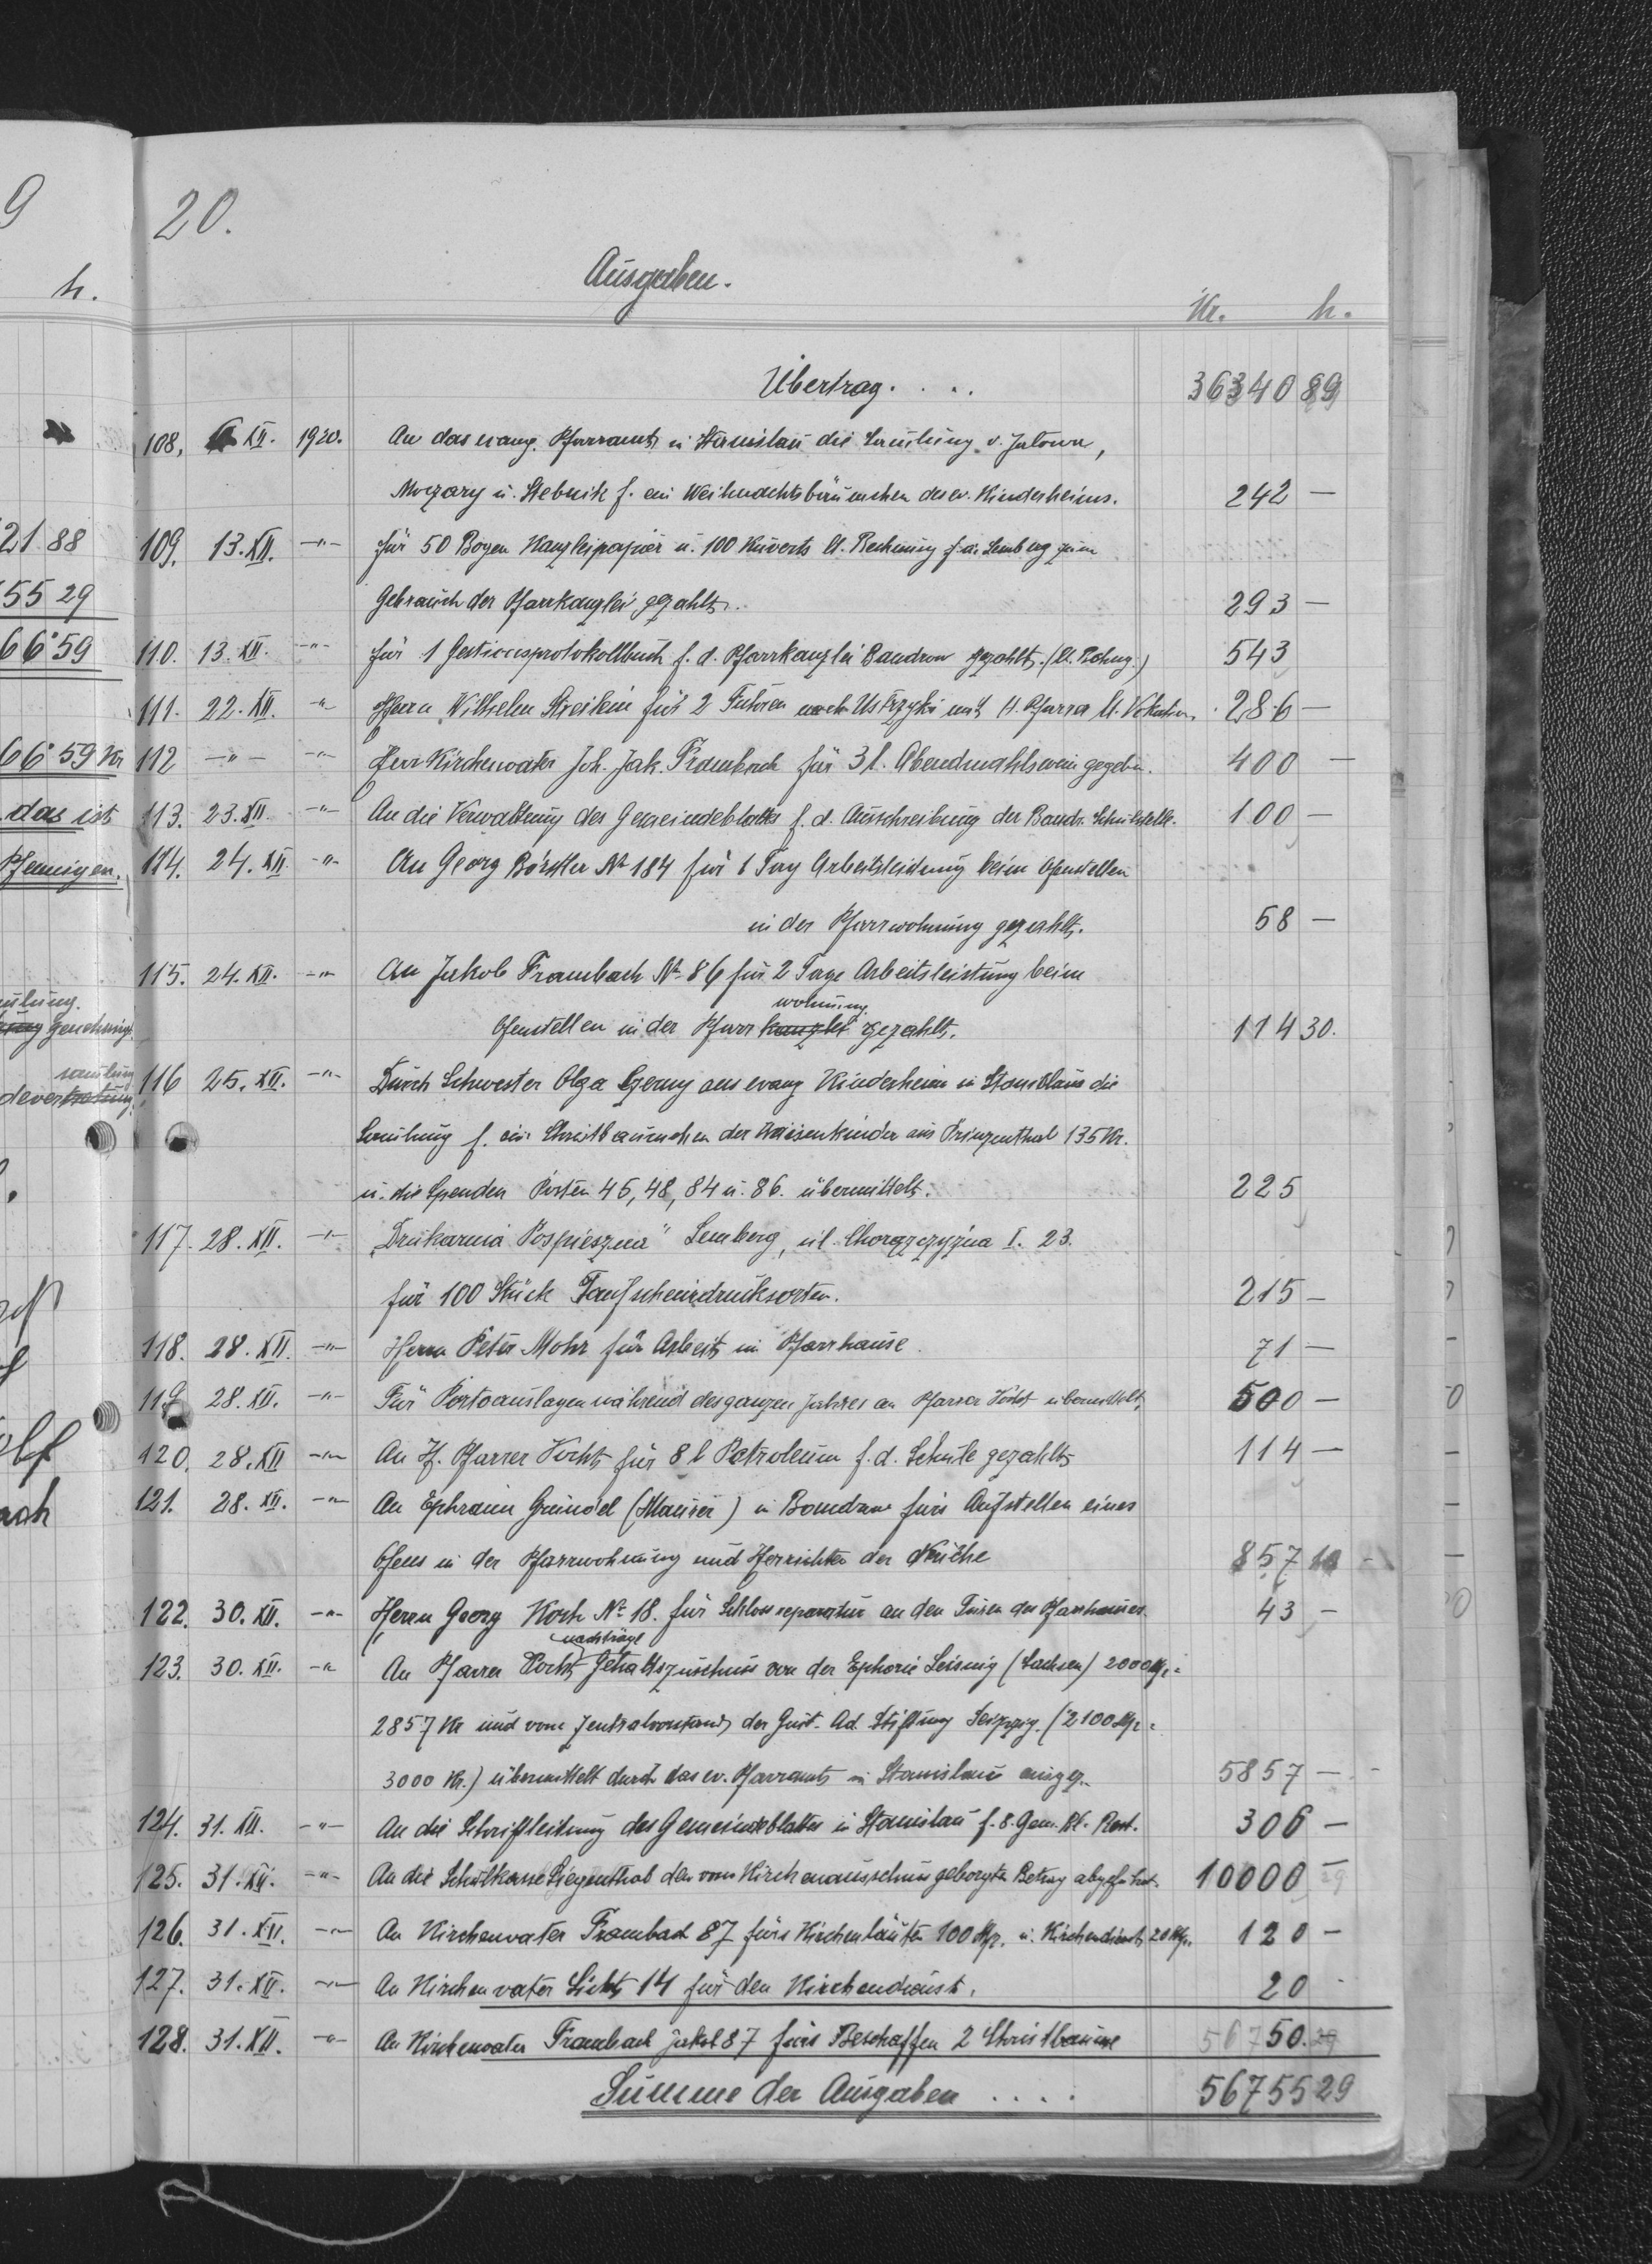 9
h.
21 88
55 29
66·59
66·59 Kr
das ist
20.
Ausgaben.
Kr. h.
Übertrag. . . . 36340 89
108. XII. 1920. An das evang. Pfarramt in Stanislau die Samlung v. Jalowe,
Moczary u. Stebnik f. ein Weihnachtsbäumchen des ev. Kinderheims. 242 —
109. 13. XII. —"— für 50 Bogen Kanzleipapier u. 100 Kuverts lt. Rechnung Lemberg zum
Gebrauch der Pfarrkanzlei gezahlt. 293 —
110. 13. XII. —"— für 1 Gestionsprotokollbuch f. d. Pfarrkanzlei Bandrow gezahlt. (lt. Rchng.) 543
111. 22. XII. —"— Herrn Wilhelm Streilein für 2 Fuhren nach Ustrzyki mit H. Pfarrer 286 —
112 —"— —"— Herr Kirchenvater Joh. Jak. Frambach für 3 l. Abendmahlswein gegeben. 400 —
113. 23. XII. —"— An die Verwaltung des Gemeindeblattes f. d. Ausschreibung der Bandr. Schulstelle. 100 —
114. 24. XII. —"— An Georg Börstler № 184 für 1 Tag Arbeitsleistung beim Ofenstellen
in der Pfarrwohnung gezahlt. 58 —
115. 24. XII. —"— An Jakob Frambach № 86 für 2 Tage Arbeitsleistung beim
wohnung
Ofenstellen in der Pfarr kanzlei gezahlt. 114 30.
116 25. XII. —"— Durch Schwester Olga Czerny aus evang Kinderheim in Stanislaus die
Samlung f. ein Christbäumchen der Waisenkinder aus Prinzenthal 135 Kr.
u. die Spenden Posten 45, 48, 84 u. 86. übermittelt. 225
117. 28. XII. —"— „Drukarnia Pospieszna" Lemberg, ul. Chorążczyzna I. 23.
für 100 Stück Taufscheindrucksorten. 215 —
118. 28. XII. —"— Herrn Peter Mohr für Arbeit im Pfarrhause 71 —
119 28. XII. —"— Für Portoauslagen während des ganzen Jahres an Pfarrer übermittelt. 500 —
120. 28. XII —"— An H. Pfarrer für 8 l Petroleum f. d. Schule gezahlt 114 —
121. 28. XII. —"— An Ephraim Gründel (Maurer) in Bandrow fürs Aufstellen eines
Ofens in der Pfarrwohnung und Herrichten der Küche 857 10
122. 30. XII. —"— Herrn Georg Koch № 18. für Schlossreparatur an den Türen des Pfarrhauses. 43 —
nachträgl
123. 30. XII. —"— An Pfarrer Gehaltszuschuss von der Ephorie Leisnig (Sachsen) 2000 Mk =
2857 Kr und vom Zentralvorstand der Gust. Ad. Stiftung Leipzig (2100 Mk =
3000 Kr.) übermittelt durch das ev. Pfarramt in Stanislau 5857 —
124. 31. XII. —"— An die Schriftleitung des Gemeindeblattes in Stanislau f. 8. Gem. Bl. Rest. 306 —
125. 31. XII. —"— An die Schulkasse Siegenthal den vom Kirchenausschuss geborgten Betrag abgeführt. 10000 —
126. 31. XII. —"— An Kirchenvater Frambach 87 fürs Kirchenläuten 100 Mk. u. Kirchendienst 20 Mk. 120 —
127. 31. XII. —"— An Kirchenvater Licht 14 für den Kirchendienst. 20
128. 31. XII. —"— An Kirchenvater Frambach Jakob 87 fürs Beschaffen 2 Christbäume 50.—
Summe der Ausgaben . . . . 56755 29